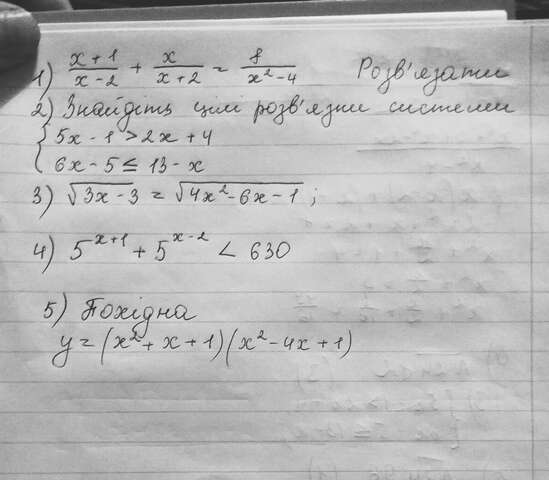 1) (x+1)/(x-2) + x/(x+2) = 8/(x²-4) Розв'язати
2) Знайдіть цілі розв'язки системи
{ 5x - 1 > 2x + 4
6x - 5 ≤ 13 - x
3) √(3x - 3) = √(4x² - 6x - 1) ;
4) 5^(x+1) + 5^(x-2) < 630
5) Похідна
y = (x² + x + 1)(x² - 4x + 1)